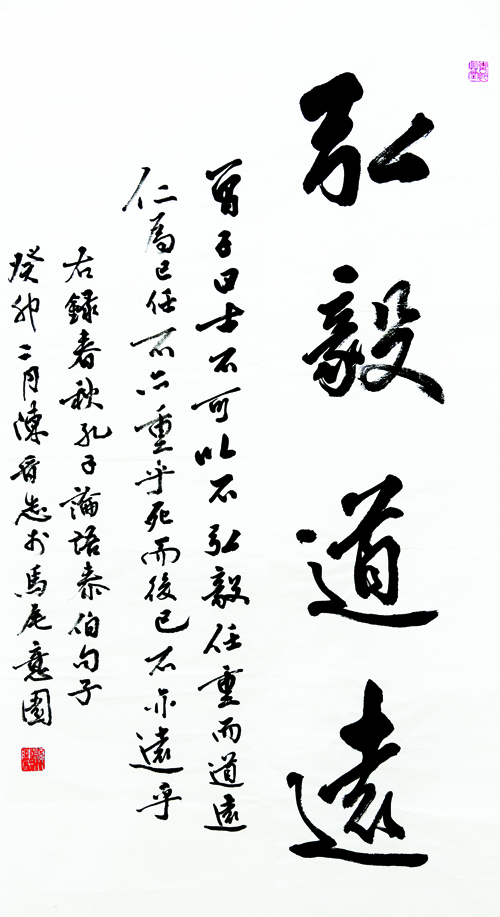 弘毅道遠
曾子曰士不可以不弘毅任重而道遠
仁為己任不亦重乎死而後已不亦遠乎
右録春秋孔子論語泰伯句子
癸卯二月陳晉志於馬尾意園